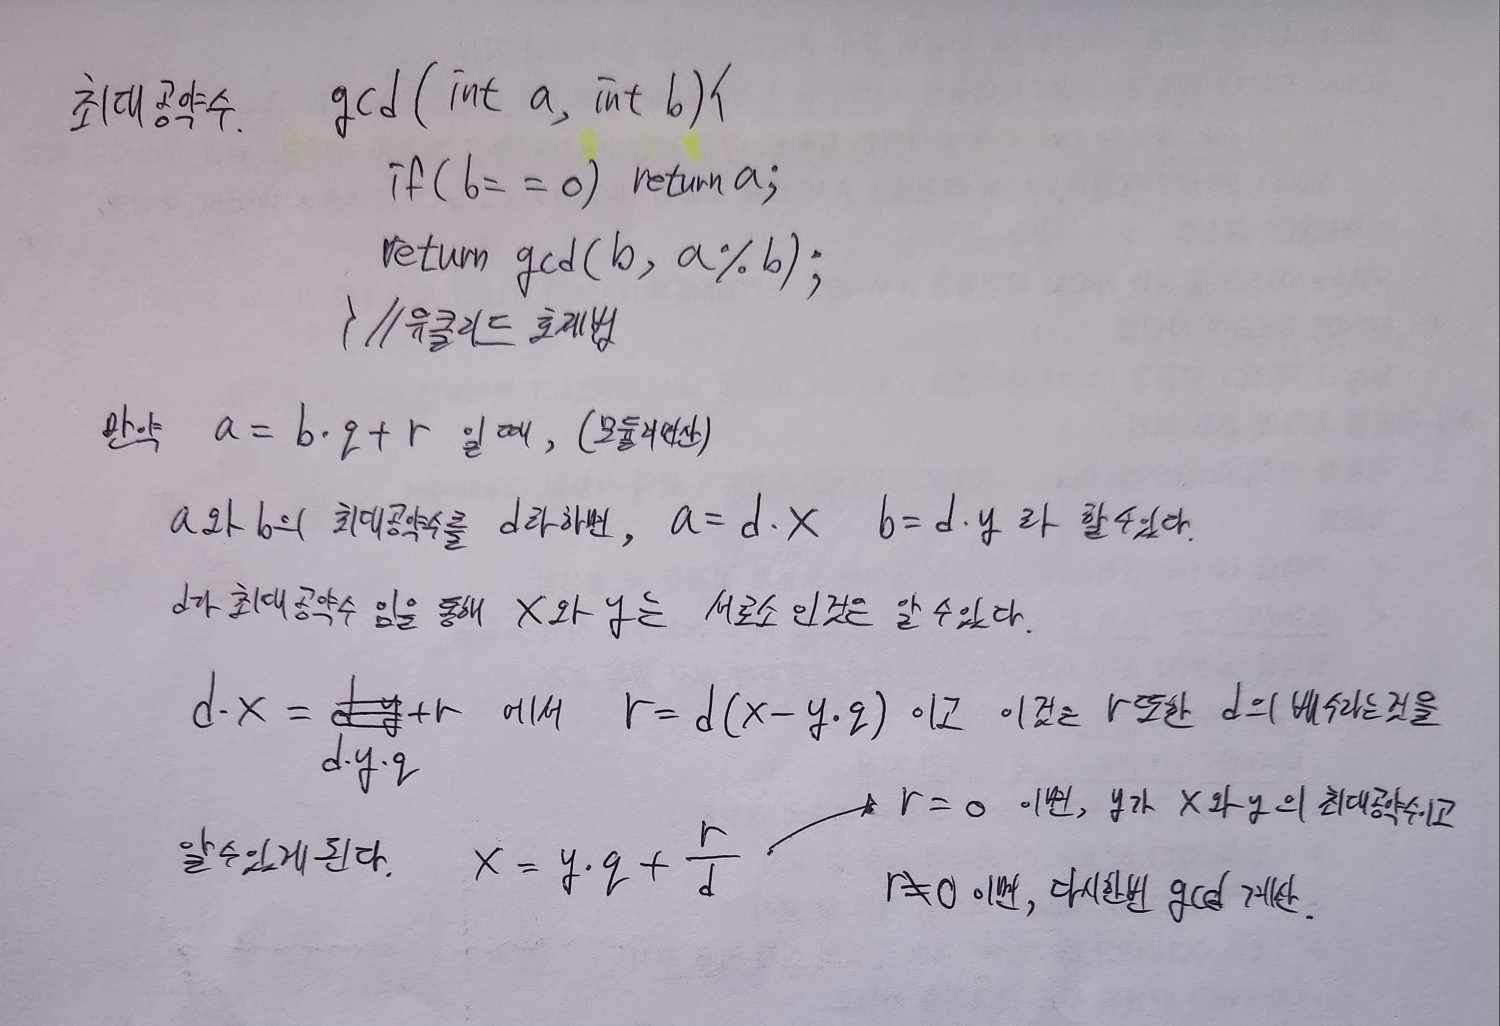 최대공약수. gcd(int a, int b){
if(b==0) return a;
return gcd(b, a%b);
} //유클리드 호제법
만약 a = b·q+r 일 때, (모듈러연산)
a와 b의 최대공약수를 d라하면, a=d·x b=d·y 라 할수있다.
d가 최대공약수 임을 통해 x와 y는 서로소 인것은 알 수 있다.
d·x = d·y+r 에서 r=d(x-y·q) 이고 이것은 r또한 d의 배수라는것을
d·y·q
r=0 이면, y가 x와y의 최대공약수이고
알수있게 된다. x = y·q + r/d
r≠0 이면, 다시한번 gcd 계산.